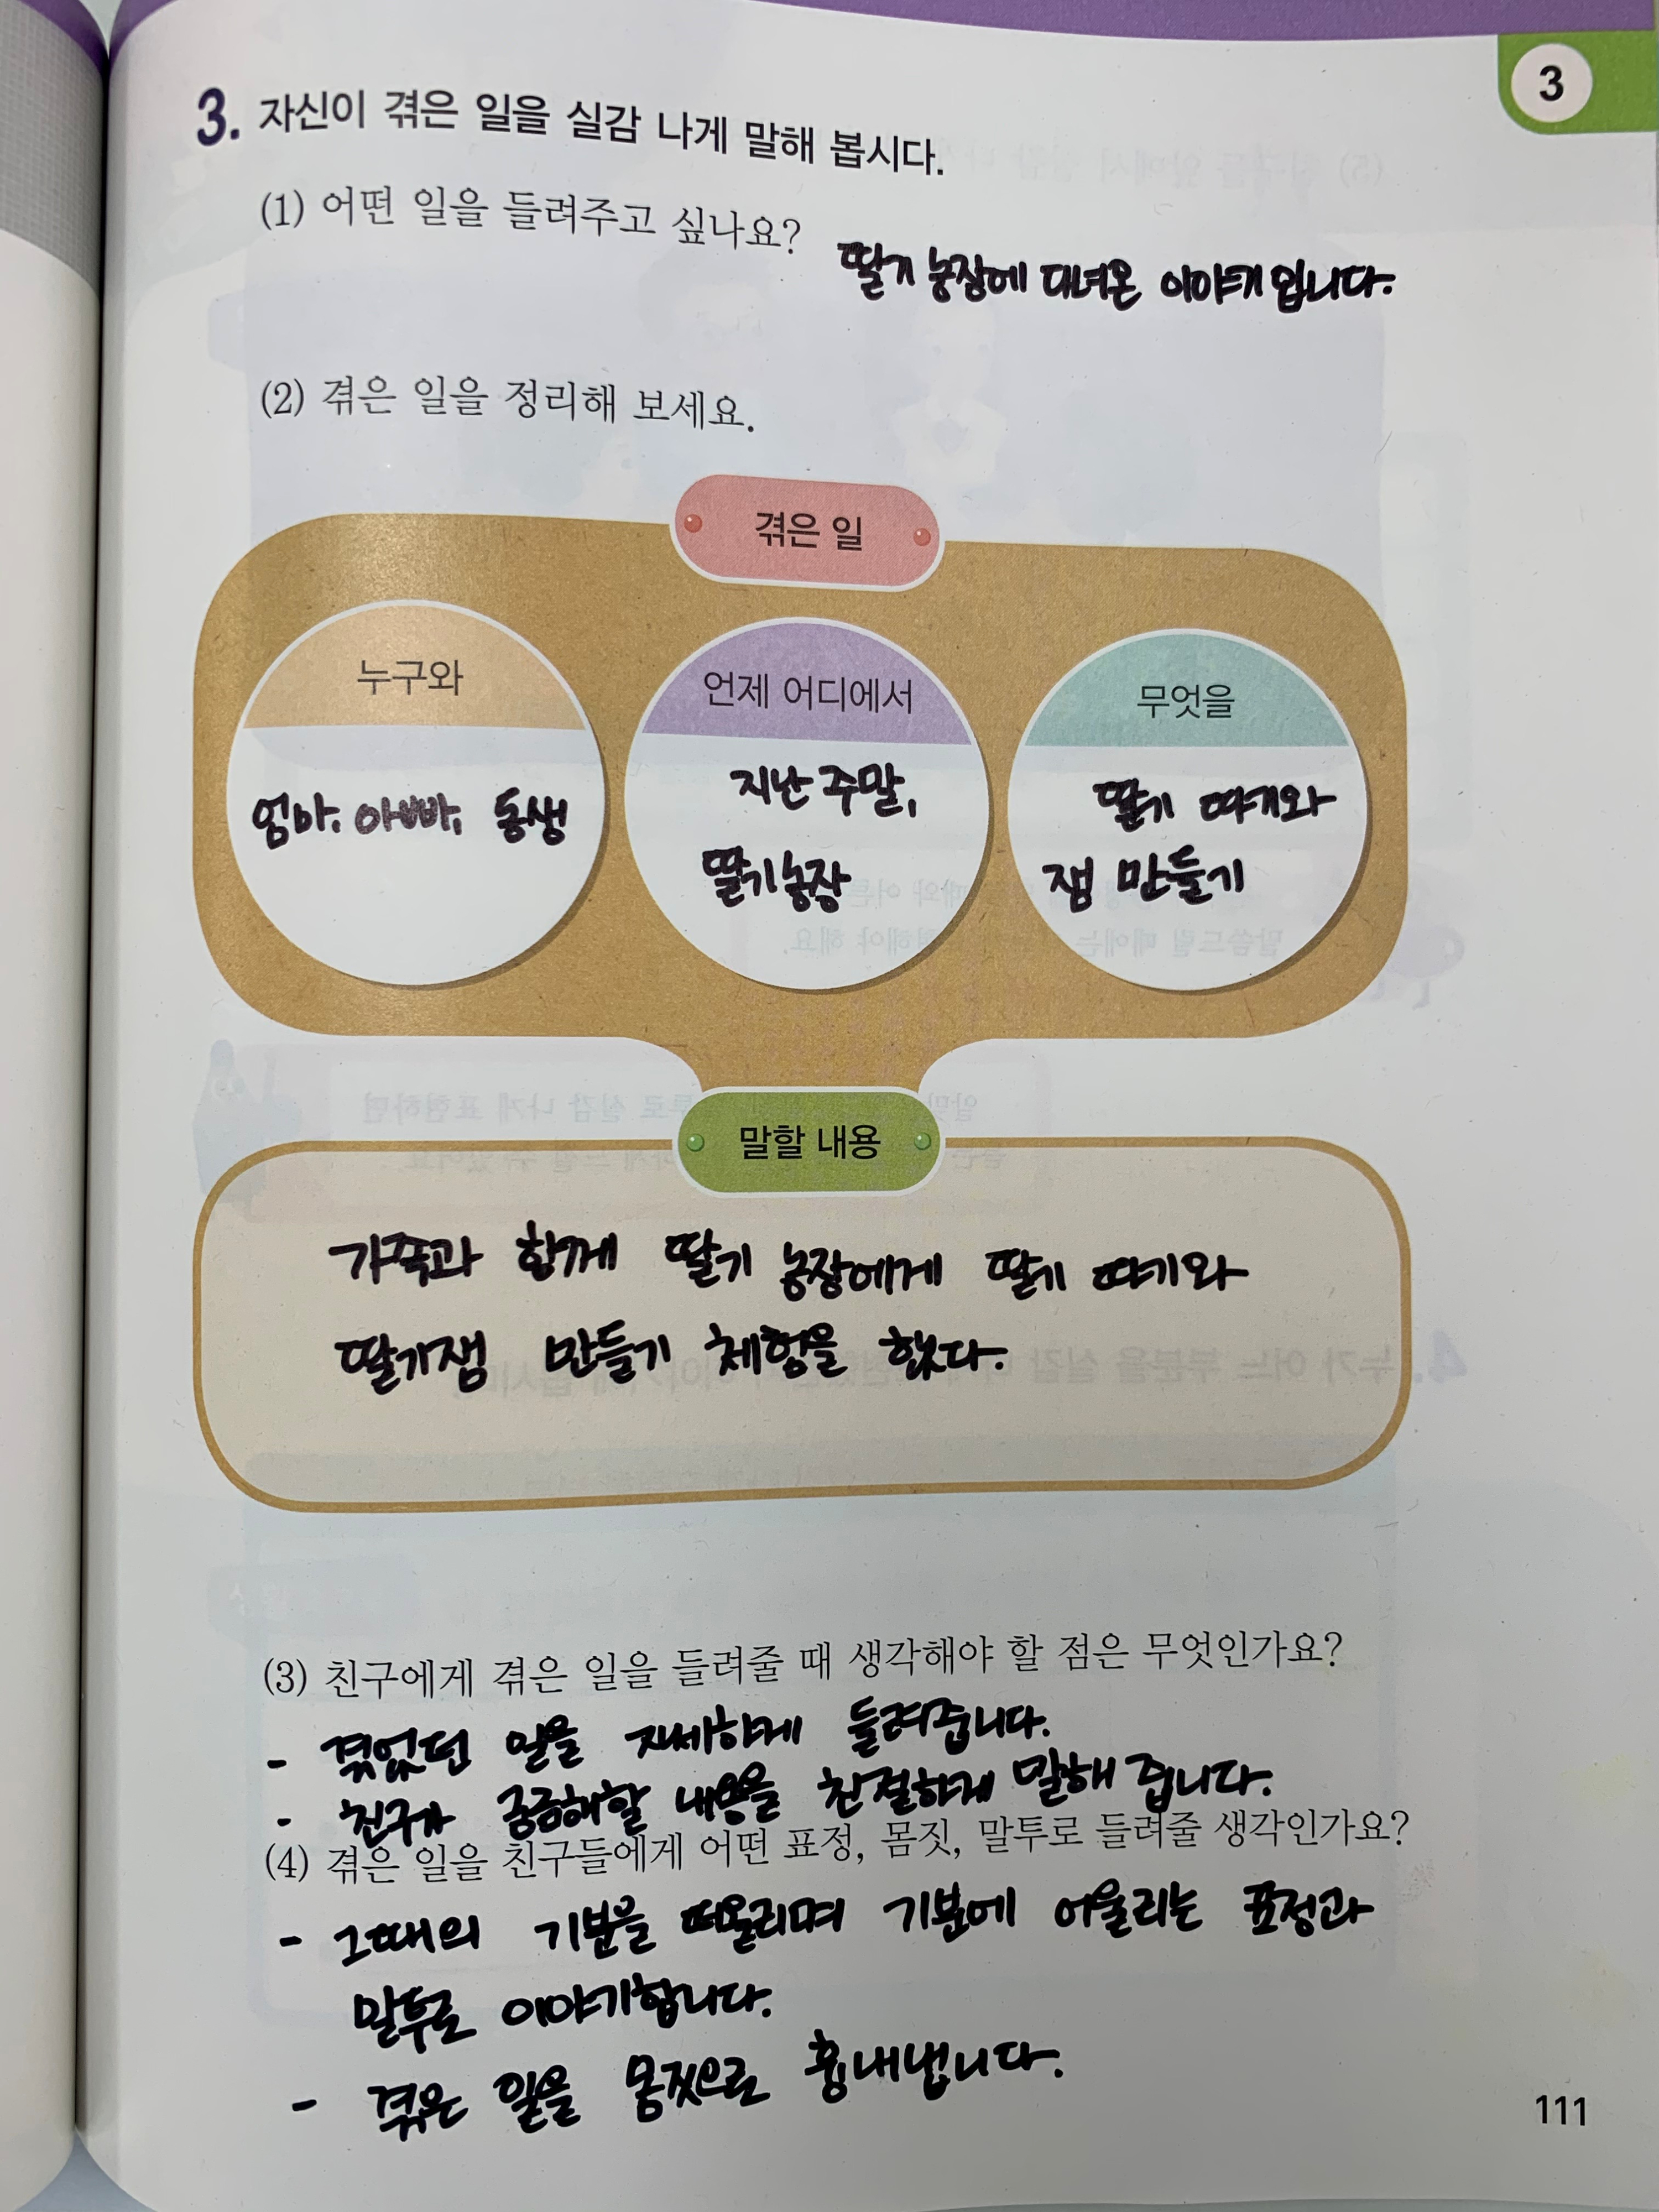 3
3. 자신이 겪은 일을 실감 나게 말해 봅시다.
(1) 어떤 일을 들려주고 싶나요?
딸기 농장에 다녀온 이야기 입니다.
(2) 겪은 일을 정리해 보세요.
겪은 일
누구와
엄마, 아빠, 동생
언제 어디에서
지난 주말,
딸기농장
무엇을
딸기 따기와
잼 만들기
말할 내용
가족과 함께 딸기 농장에게 딸기 따기와
딸기잼 만들기 체험을 했다.
(3) 친구에게 겪은 일을 들려줄 때 생각해야 할 점은 무엇인가요?
- 겪었던 일을 자세하게 들려줍니다.
- 친구가 궁금해할 내용을 친절하게 말해 줍니다.
(4) 겪은 일을 친구들에게 어떤 표정, 몸짓, 말투로 들려줄 생각인가요?
- 그때의 기분을 떠올리며 기분에 어울리는 표정과
말투로 이야기합니다.
- 겪은 일을 몸짓으로 흉내냅니다.
111